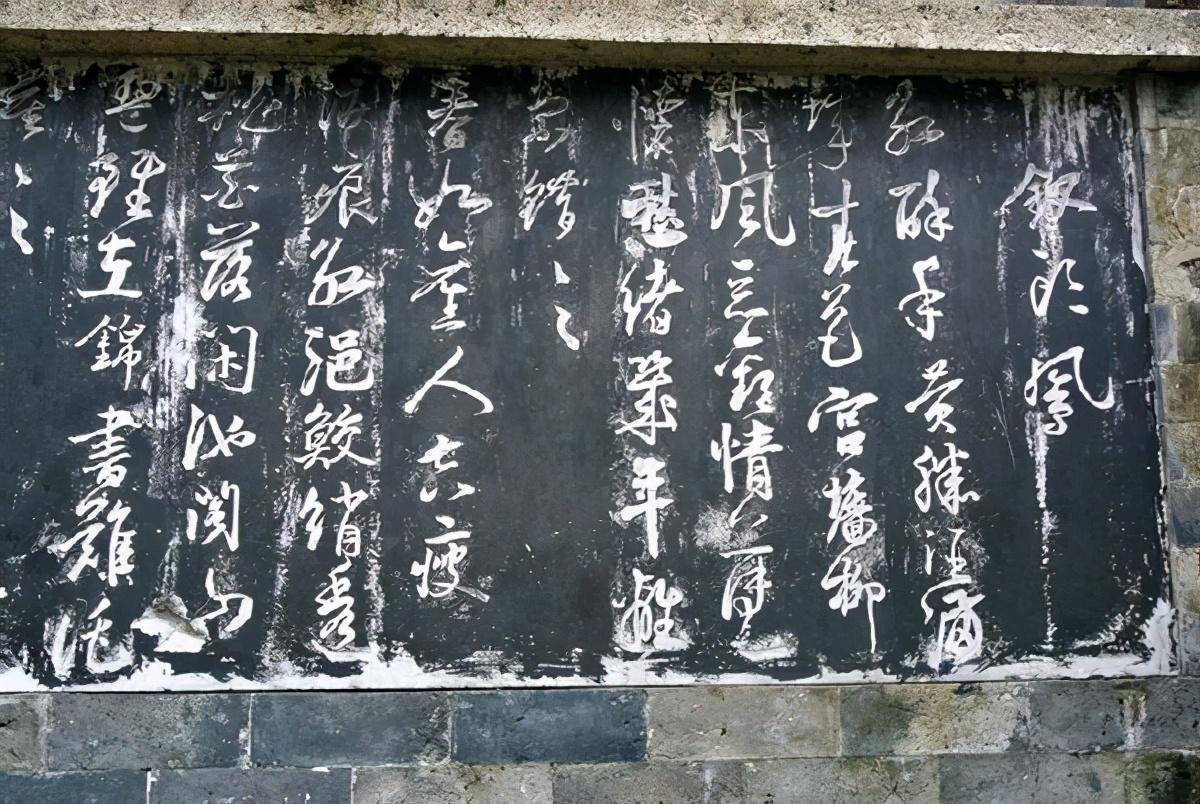 釵頭鳳
紅酥手黃縢酒滿
城春色宮墻柳
東風惡歡情薄一
懷愁緒幾年離
索錯々々
春如舊人空瘦
淚痕紅浥鮫綃透
桃花落閑池閣山
盟雖在錦書難託
莫々々